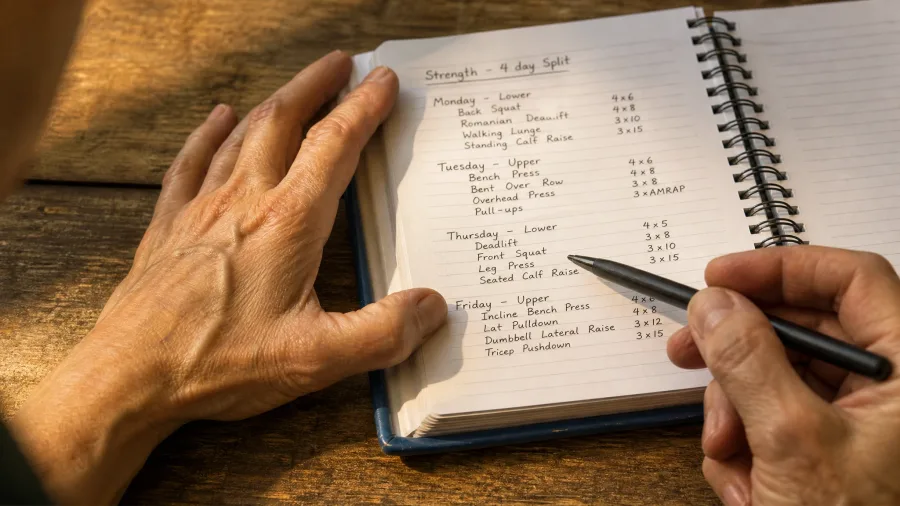 Strength - 4 day Split
Monday - Lower
Back Squat 4x6
Romanian 4x8
Walking Lunge 3x10
Standing Calf Raise 3x15
Tuesday - Upper
Bench Press 4x6
Bent Over Row 4x8
Overhead Press 3x8
Pull-ups 3xAMRAP
Thursday - Lower
Deadlift 4x5
Front Squat 3x8
Leg Press 3x10
Seated Calf Raise 3x15
Friday - Upper
Incline Bench Press
Lat Pulldown 4x8
Dumbbell Lateral Raise 3x12
Tricep Pushdown 3x15